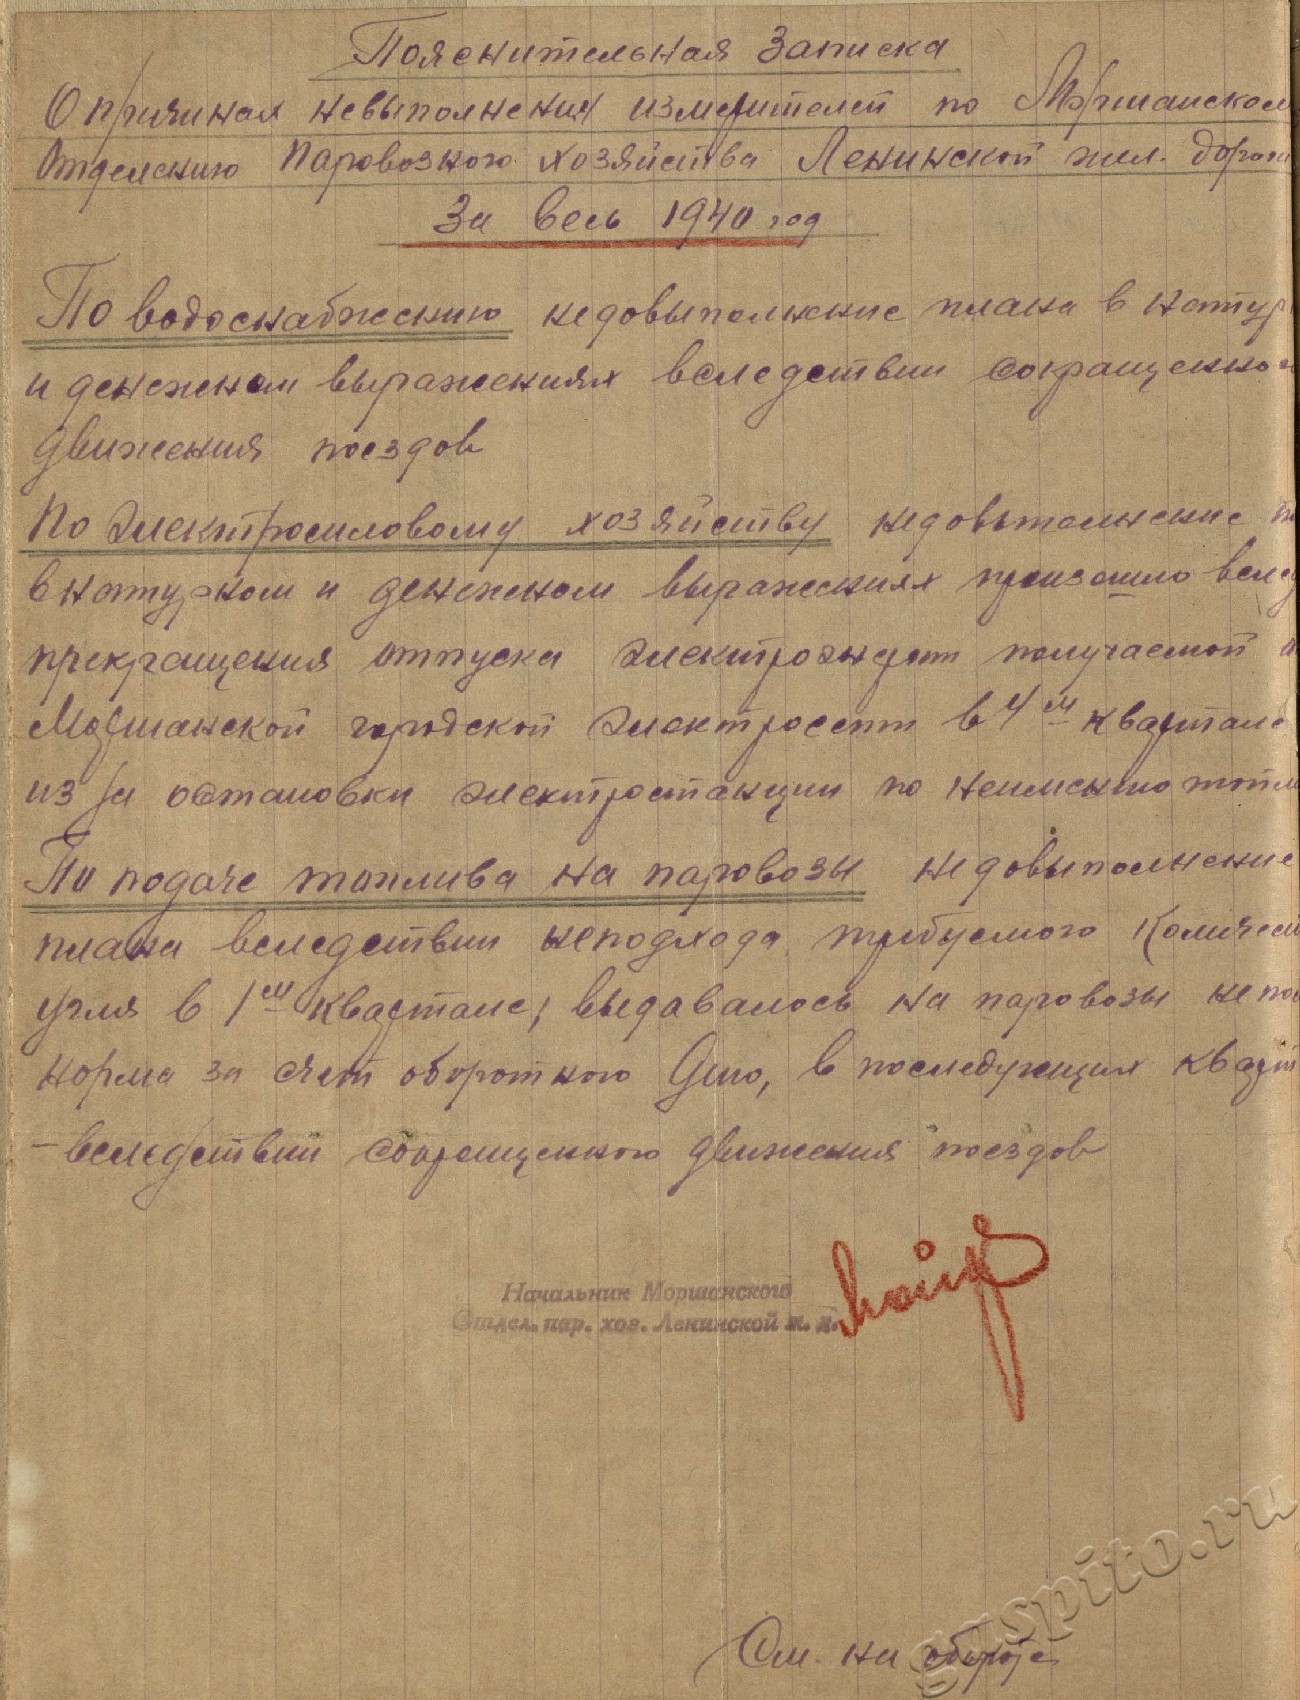 Пояснительная записка
О причинах невыполнения измерителей по Моршанском
Отделению Паровозного хозяйства Ленинской жел. дороги
За весь 1940 год
По водоснабжению недовыполнение плана в натур
и денежном выражениях вследствии сокращенно
движения поездов
По Электросиловому хозяйству недовыполнение
в натурном и денежном выражениях произошло вслед
прекращения отпуска электроэнергии получаемой
Моршанской городской электросети в 4м квартале
из за остановки электростанции по неимению топли
По подаче топлива на паровозы недовыполнение
плана вследствии неподхода требуемого Количест
угля в 1м квартале; выдавалось на паровозы не по
норма за счет оборотного, в последующих кварт
– вследствии сокращенного движения поездов
Начальник Моршанского
Отдел. пар. хоз. Ленинской ж. д.
См. на обороте
gaspito.ru